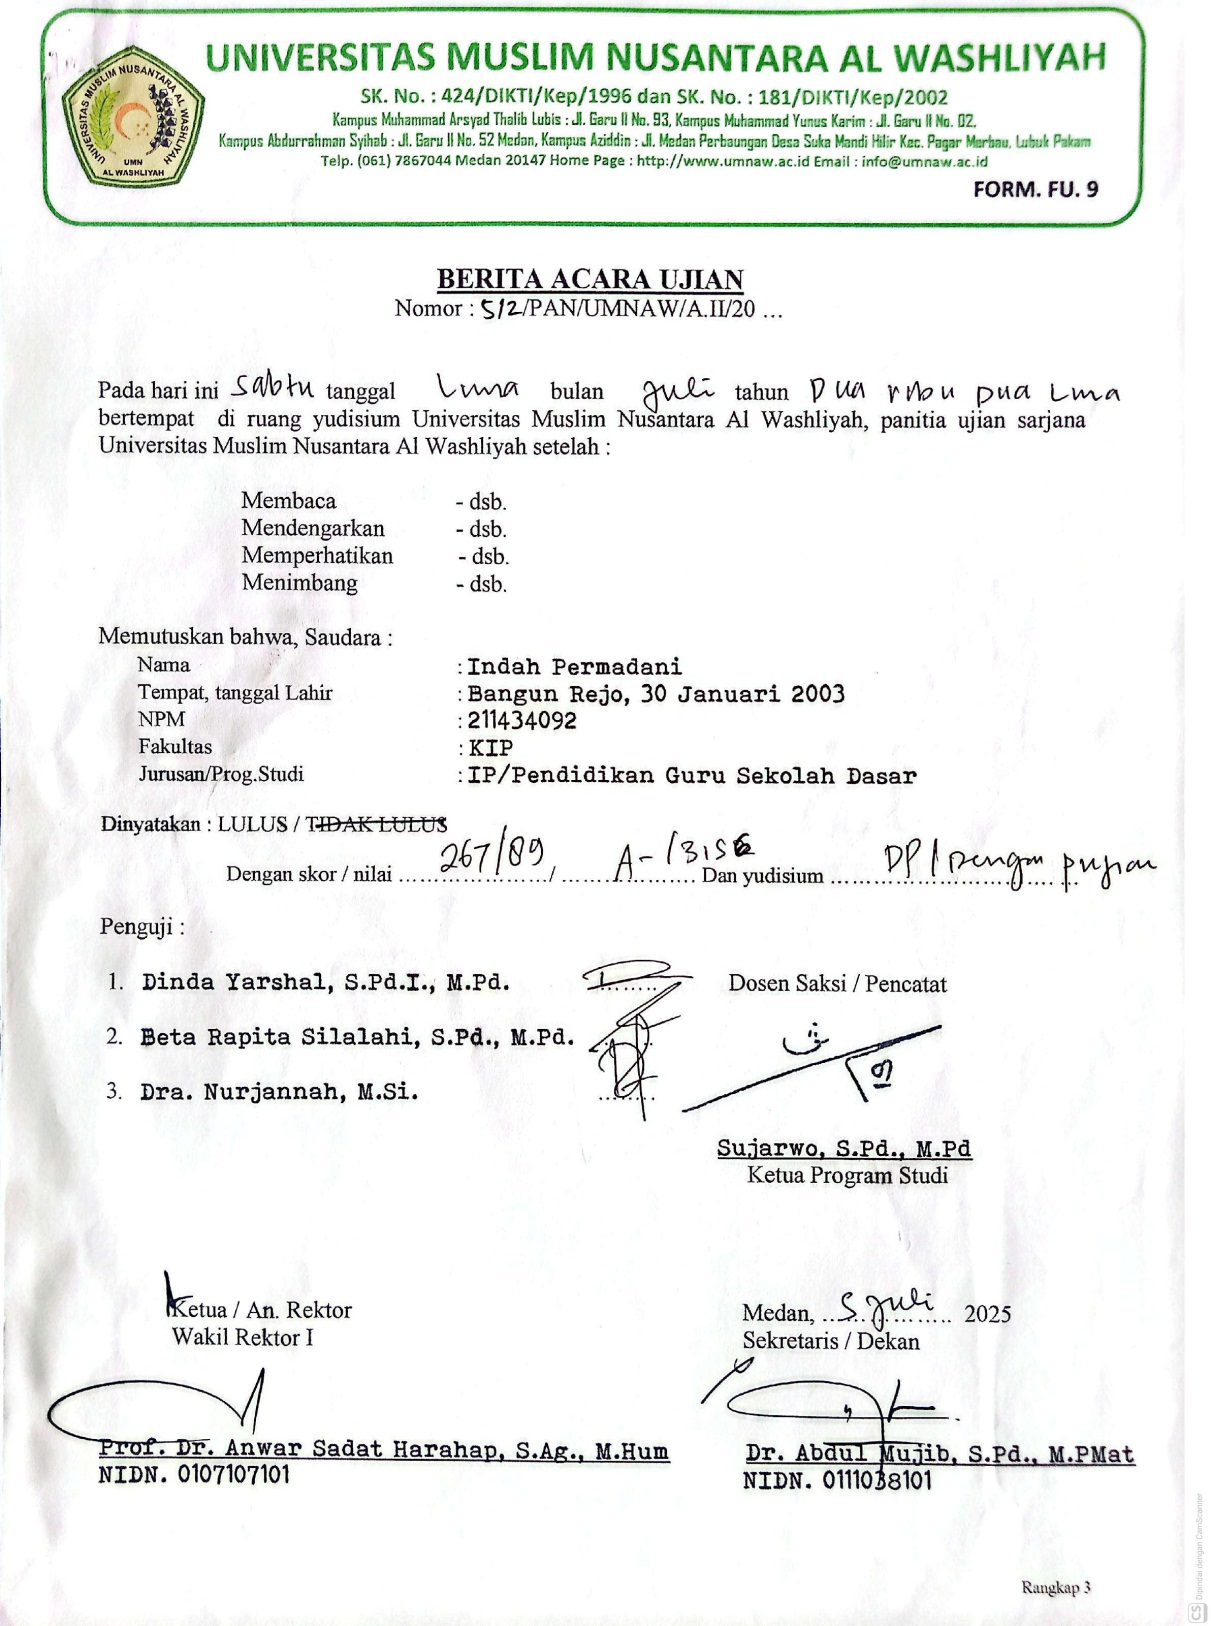 UNIVERSITAS MUSLIM NUSANTARA AL WASHLIYAH
UMN
AL WASHLIYAH
UNIVERSITAS MUSLIM NUSANTARA AL WASHLIYAH
SK. No. : 424/DIKTI/Kep/1996 dan SK. No. : 181/DIKTI/Kep/2002
Kampus Muhammad Arsyad Thalib Lubis : Jl. Garu II No. 93, Kampus Muhammad Yunus Karim : Jl. Garu II No. 02,
Kampus Abdurrahman Syihab : Jl. Garu II No. 52 Medan, Kampus Aziddin : Jl. Medan Perbaungan Desa Suka Mandi Hilir Kec. Pagar Merbau, Lubuk Pakam
Telp. (061) 7867044 Medan 20147 Home Page : http://www.umnaw.ac.id Email : info@umnaw.ac.id
FORM. FU. 9
BERITA ACARA UJIAN
Nomor : 512/PAN/UMNAW/A.II/20 ...
Pada hari ini Sabtu tanggal Lima bulan Juli tahun Dua ribu Dua Lima
bertempat di ruang yudisium Universitas Muslim Nusantara Al Washliyah, panitia ujian sarjana
Universitas Muslim Nusantara Al Washliyah setelah :
Membaca - dsb.
Mendengarkan - dsb.
Memperhatikan - dsb.
Menimbang - dsb.
Memutuskan bahwa, Saudara :
Nama : Indah Permadani
Tempat, tanggal Lahir : Bangun Rejo, 30 Januari 2003
NPM : 211434092
Fakultas : KIP
Jurusan/Prog.Studi : IP/Pendidikan Guru Sekolah Dasar
Dinyatakan : LULUS / TIDAK LULUS
Dengan skor / nilai 267/89 / A- / Dan yudisium DP / Dengan pujian
Penguji :
1. Dinda Yarshal, S.Pd.I., M.Pd.
Dosen Saksi / Pencatat
2. Beta Rapita Silalahi, S.Pd., M.Pd.
3. Dra. Nurjannah, M.Si.
Sujarwo, S.Pd., M.Pd
Ketua Program Studi
Ketua / An. Rektor
Wakil Rektor I
Medan, 5 Juli 2025
Sekretaris / Dekan
Prof. Dr. Anwar Sadat Harahap, S.Ag., M.Hum
NIDN. 0107107101
Dr. Abdul Mujib, S.Pd., M.PMat
NIDN. 0111038101
Rangkap 3
CS Dipindai dengan CamScanner